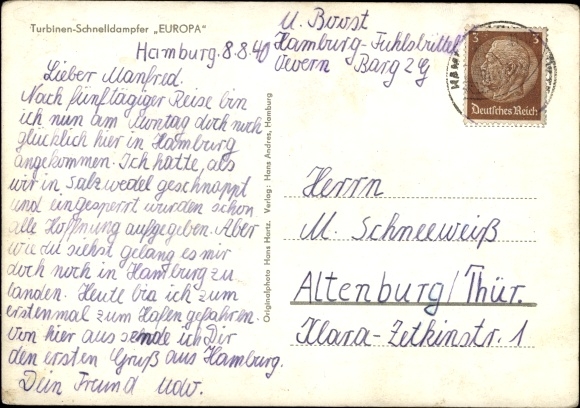 Turbinen-Schnelldampfer „EUROPA"
Hamburg. 8.8.40
Lieber Manfred.
Nach fünftägiger Reise bin
ich nun am Montag doch noch
glücklich hier in Hamburg
angekommen. Ich hatte, als
wir in Salzwedel geschnappt
und eingesperrt wurden schon
alle Hoffnung aufgegeben. Aber
wie du siehst gelang es mir
doch noch in Hamburg zu
landen. Heute bin ich zum
erstenmal zum Hafen gefahren.
Von hier aus sende ich Dir
den ersten Gruß aus Hamburg.
Dein Freund Udo.
Originalphoto Hans Hartz. Verlag: Hans Andres, Hamburg
Hamburg-Fuhlsbüttel
3 3
Deutsches Reich
Herrn
M. Schneeweiß
Altenburg/Thür.
Klara-Zetkinstr. 1